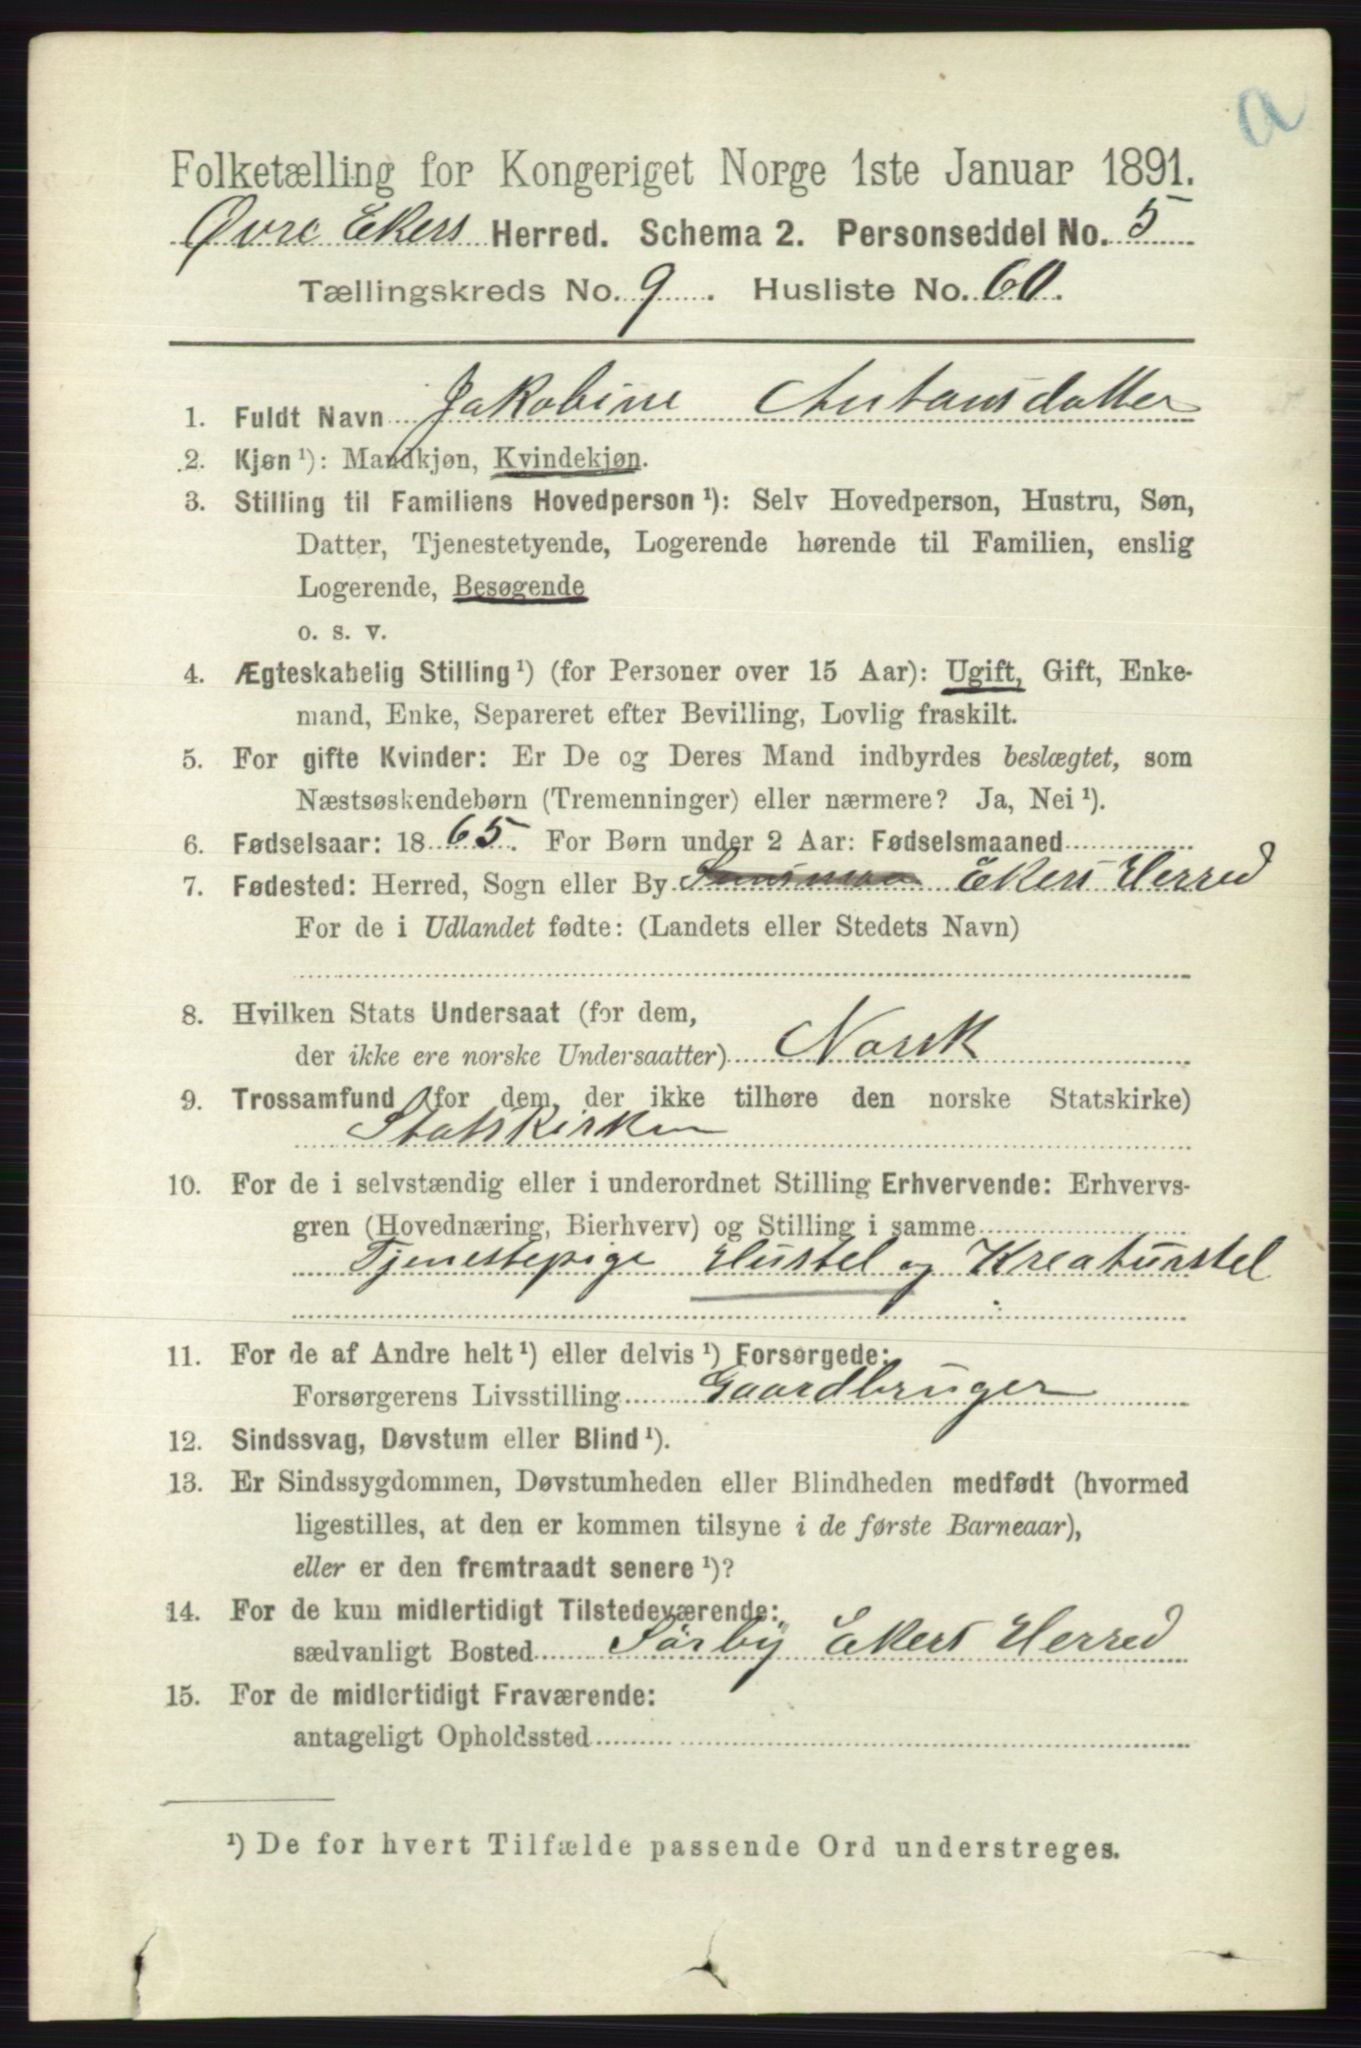 a
Folketælling for Kongeriget Norge 1ste Januar 1891.
Øvre Ekers Herred. Schema 2. Personseddel No. 5
Tællingskreds No. 9. Husliste No. 60.
1. Fuldt Navn Jakobine Antonsdatter
2. Kjøn ¹): Mandkjøn, Kvindekjøn.
3. Stilling til Familiens Hovedperson ¹): Selv Hovedperson, Hustru, Søn,
Datter, Tjenestetyende, Logerende hørende til Familien, enslig
Logerende, Besøgende
o. s. v.
4. Ægteskabelig Stilling ¹) (for Personer over 15 Aar): Ugift, Gift, Enke-
mand, Enke, Separeret efter Bevilling, Lovlig fraskilt.
5. For gifte Kvinder: Er De og Deres Mand indbyrdes beslægtet, som
Næstsøskendebørn (Tremenninger) eller nærmere? Ja, Nei ¹).
6. Fødselsaar: 1865. For Børn under 2 Aar: Fødselsmaaned
7. Fødested: Herred, Sogn eller By Ekers Herred
For de i Udlandet fødte: (Landets eller Stedets Navn)
8. Hvilken Stats Undersaat (for dem,
der ikke ere norske Undersaatter) Norsk
9. Trossamfund (for dem, der ikke tilhøre den norske Statskirke)
Statskirken
10. For de i selvstændig eller i underordnet Stilling Erhvervende: Erhvervs-
gren (Hovednæring, Bierhverv) og Stilling i samme
Tjenestepige Hustel og Kreaturstel
11. For de af Andre helt ¹) eller delvis ¹) Forsørgede:
Forsørgerens Livsstilling Gaardbruger
12. Sindssvag, Døvstum eller Blind ¹).
13. Er Sindssygdommen, Døvstumheden eller Blindheden medfødt (hvormed
ligestilles, at den er kommen tilsyne i de første Barneaar),
eller er den fremtraadt senere ¹)?
14. For de kun midlertidigt Tilstedeværende:
sædvanligt Bosted Sørby Ekers Herred
15. For de midlertidigt Fraværende:
antageligt Opholdssted
¹) De for hvert Tilfælde passende Ord understreges.